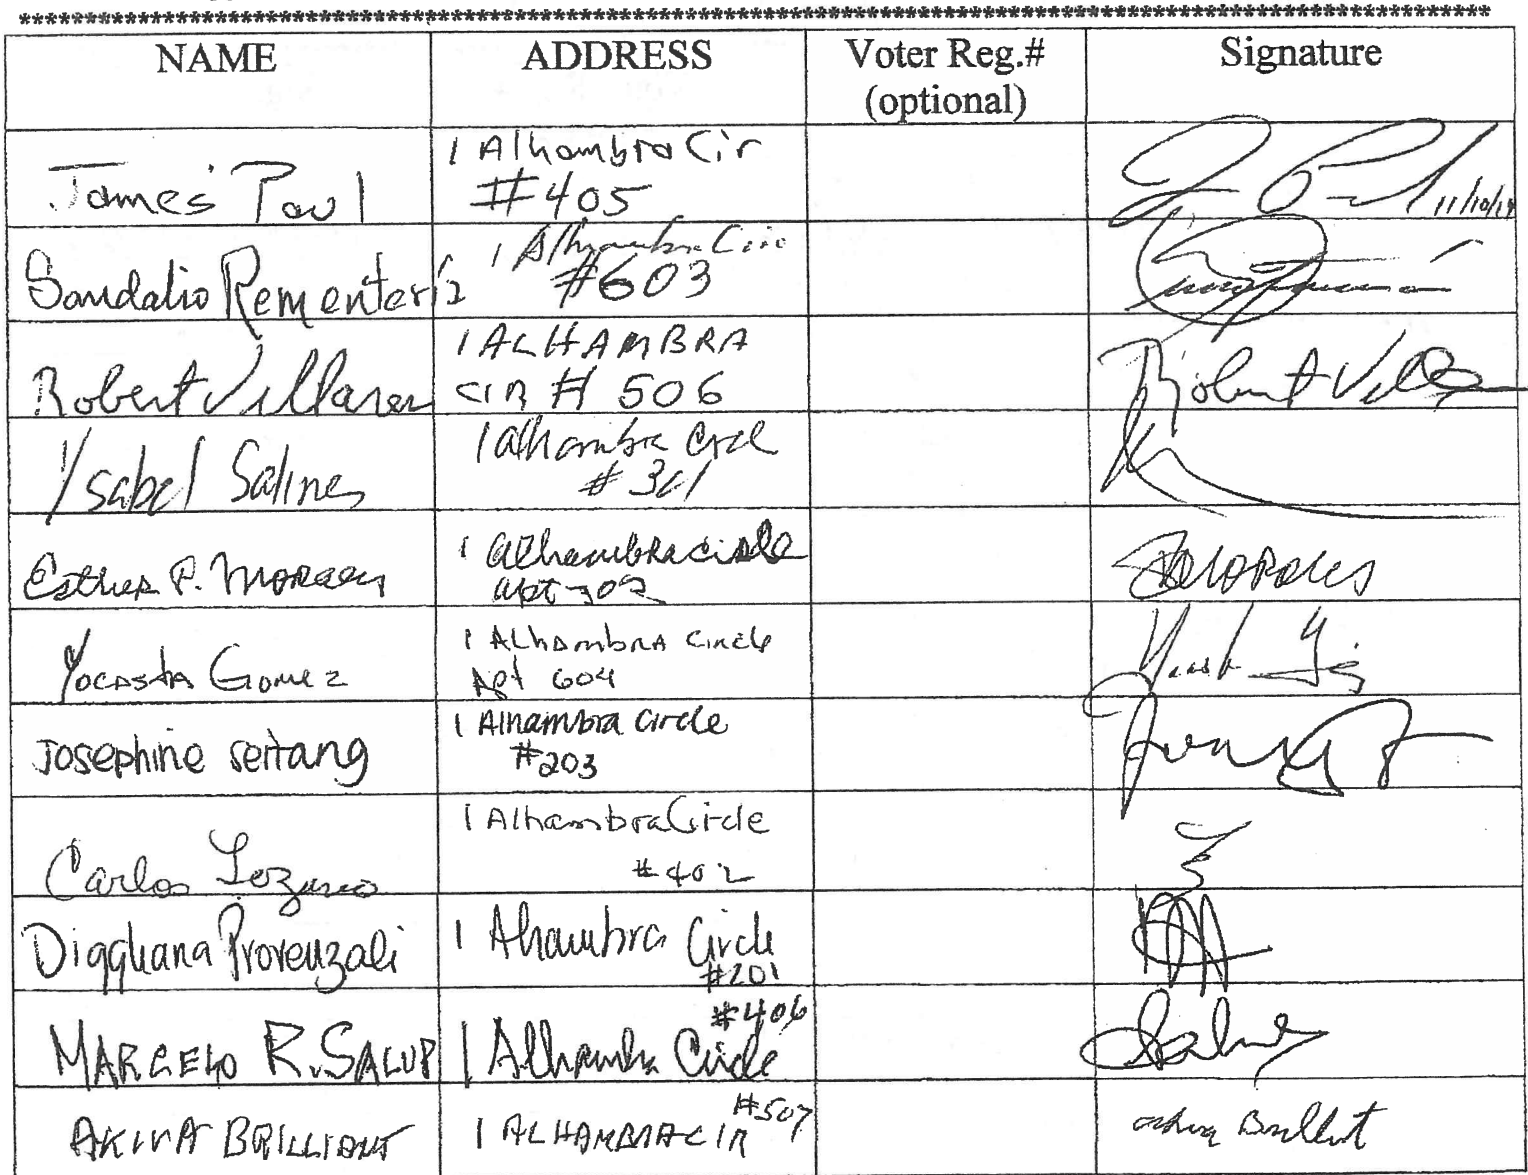 ****************************************************************************************************
NAME ADDRESS Voter Reg.# Signature
(optional)
James Paul 1 Alhambra Cir
#405 11/10/19
Sandalio Rementería 1 Alhambra Circ
#603
Robert Villares 1 ALHAMBRA
CIR # 506 Robert
Ysabel Salines 1 alhambra Circl
# 301
Esther P. Morales 1 alhambra circle
apt 702 Morales
Yocasta Gomez 1 Alhambra Circle
Apt 604
Josephine seitang 1 Alhambra Circle
#203
Carlos Lozano 1 Alhambra Circle
#402
Diggluana Provenzali 1 Alhambra Circle
#201
MARCELO R. SALUP #406
1 Alhambra Circle
AKIVA BRILLIANT 1 ALHAMBRA CIR #507 Akiva Brilliant